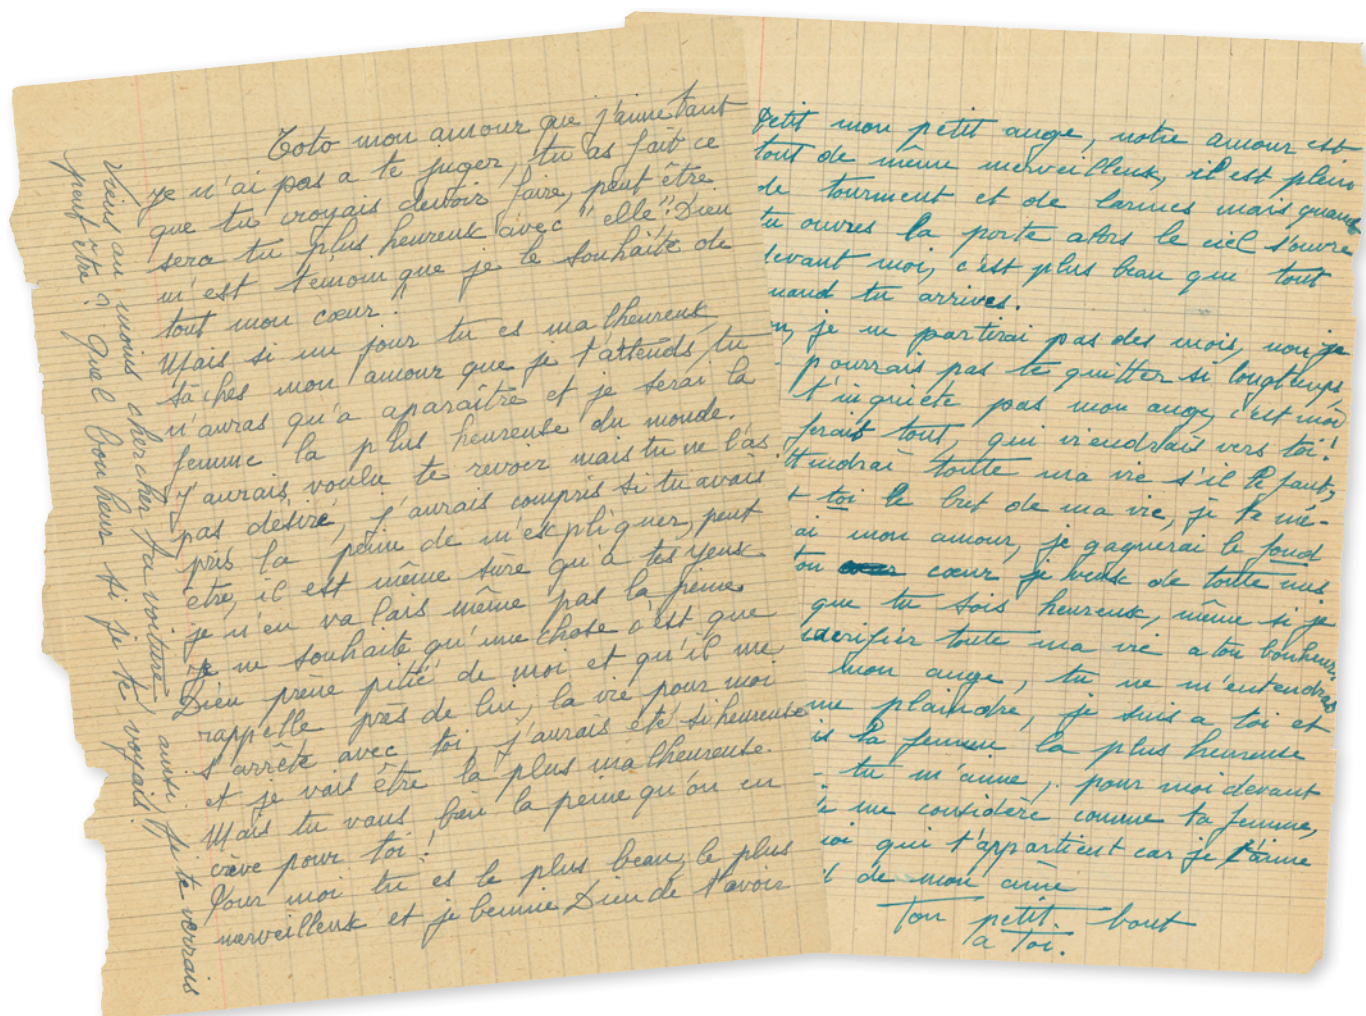 Toto mon amour que j'aime tant
je n'ai pas a te juger, tu as fait ce
que tu croyais devoir faire, peut être
sera tu plus heureux avec "elle". Dieu
m'est temoin que je le souhaite de
tout mon cœur!
Mais si un jour tu es malheureux,
sâches mon amour que je t'attends, tu
n'auras qu'a aparaître et je serai la
femme la plus heureuse du monde.
J'aurais voulu te revoir mais tu ne l'as
pas désiré, j'aurais compris si tu avais
pris la peine de m'expliquer, peut
être, il est même sûre qu'à tes yeux
je n'en valais même pas la peine
Je ne souhaite qu'une chose c'est que
Dieu prène pitié de moi et qu'il me
rappelle près de lui, la vie pour moi
s'arrête avec toi, j'aurais été si heureuse
et je vais être la plus malheureuse.
Mais tu vaus bien la peine qu'on en
crève pour toi!
Pour moi tu es le plus beau, le plus
merveilleux et je bennie Dieu de t'avoir
Viens au moins chercher ta voiture, ainsi je te verrais
peut être? Quel bonheur si je te voyais!
Petit mon petit ange, notre amour est
tout de même merveilleux, il est plein
de tourment et de larmes mais quand
tu ouvres la porte alors le ciel s'ouvre
devant moi, c'est plus beau que tout
uand tu arrives.
n, je ne partirai pas des mois, non je
pourrais pas te quitter si longtemps,
t'inquiète pas mon ange, c'est moi
ferait tout, qui viendrais vers toi!
ttendrai toute ma vie s'il le faut,
t toi le but de ma vie, je te mé-
ai mon amour, je gagnerai le fond
ton cœur je veux de toute mes
que tu sois heureux, même si je
sacrifier toute ma vie a ton bonheur,
mon ange, tu ne m'entendras
me plaindre, je suis a toi et
is la femme la plus heureuse
tu m'aime, pour moi devant
me considère comme ta femme,
oi qui t'appartient car je t'aime
de mon âme
Ton petit bout
a Toi.